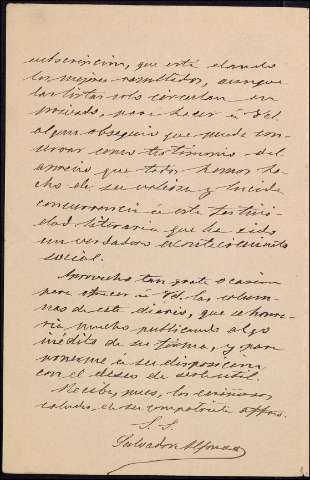 subscripción, que está dando
los mejores resultados, aunque
las listas solo circulan en
privado, para hacer á Vd.
algun obsequio que pueda con-
servar como testimonio del
aprecio que todos hemos he-
cho de su valiosa y lucida
concurrencia á esta festivi-
dad literaria que ha sido
un verdadero acontecimiento
social.
Aprovecho tan grata ocasion
para ofrecer á Vd. las colum-
nas de este diario, que se honra-
ria mucho publicando algo
inédito de su firma, y para
ponerme á su disposicion
con el deseo de serle útil.
Reciba, pues, los cariñosos
saludos de su compatriota affmo.
S. S.
Salvador Alfonso